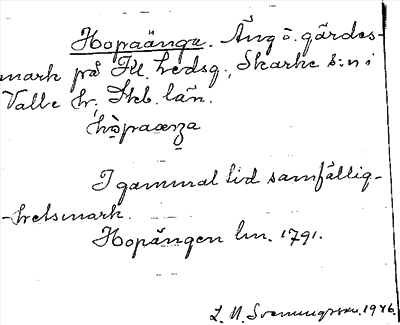 Hopaänga. Äng o. gärdes-
mark på Kl. Ledsg., Skarke s:n i
Valle hr, Skb. län.
hòpaæŋa
I gammal tid samfällig-
-hetsmark.
Hopängen lm. 1791.
L. N. Svenungsson, 1946.